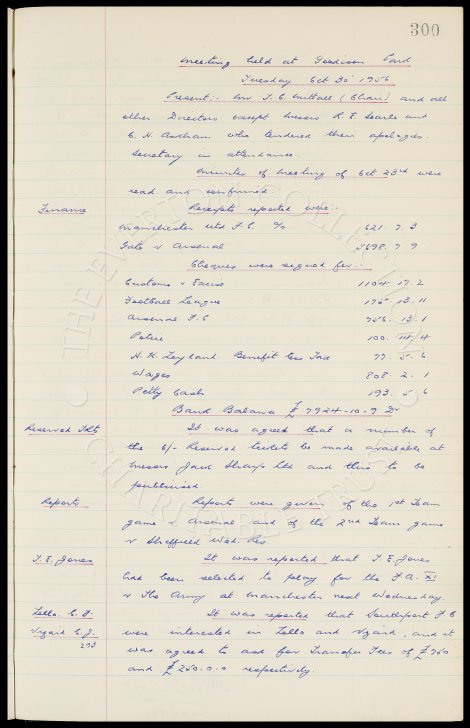 300
Meeting held at Goodison Park
Tuesday Oct 30th 1956.
Present:- Mr T. C. Nuttall (Chair) and all
other Directors except Messrs R. E. Searle and
C. H. Askham who tendered their apologies.
Secretary in attendance.
Minutes of Meeting of Oct 23rd were
read and confirmed.
Finance Receipts reported were:-
Manchester Utd F.C. % 621. 7. 3
Gate v Arsenal 5698. 7. 9
Cheques were signed for:-
Customs & Excise 1104. 17. 2
Football League 175. 13. 11
Arsenal F.C 756. 13. 1
Police 100. 14/4
H. K. Leyland. Benefit less Tax 77. 5. 6
Wages 808. 2. 1
Petty Cash 193. 5 6
Bank Balance £ 7924-10-9 Dr
Reserved Tkts It was agreed that a number of
the 6/- Reserved tickets be made available at
Messrs Jack Sharps Ltd and this to be
publicised.
Reports Reports were given of the 1st Team
game v Arsenal and of the 2nd Team game
v Sheffield Wed. Res.
T. E. Jones It was reported that T. E. Jones
had been selected to play for the F.A. XI
v The Army at Manchester next Wednesday.
Lello. C. F. It was reported that Southport F C
Vizard C. J. were interested in Lello and Vizard, and it
293
was agreed to ask for Transfer Fees of £750
and £250.0.0 respectively.
THE EVERTON COLLECTION
CHARITABLE TRUST